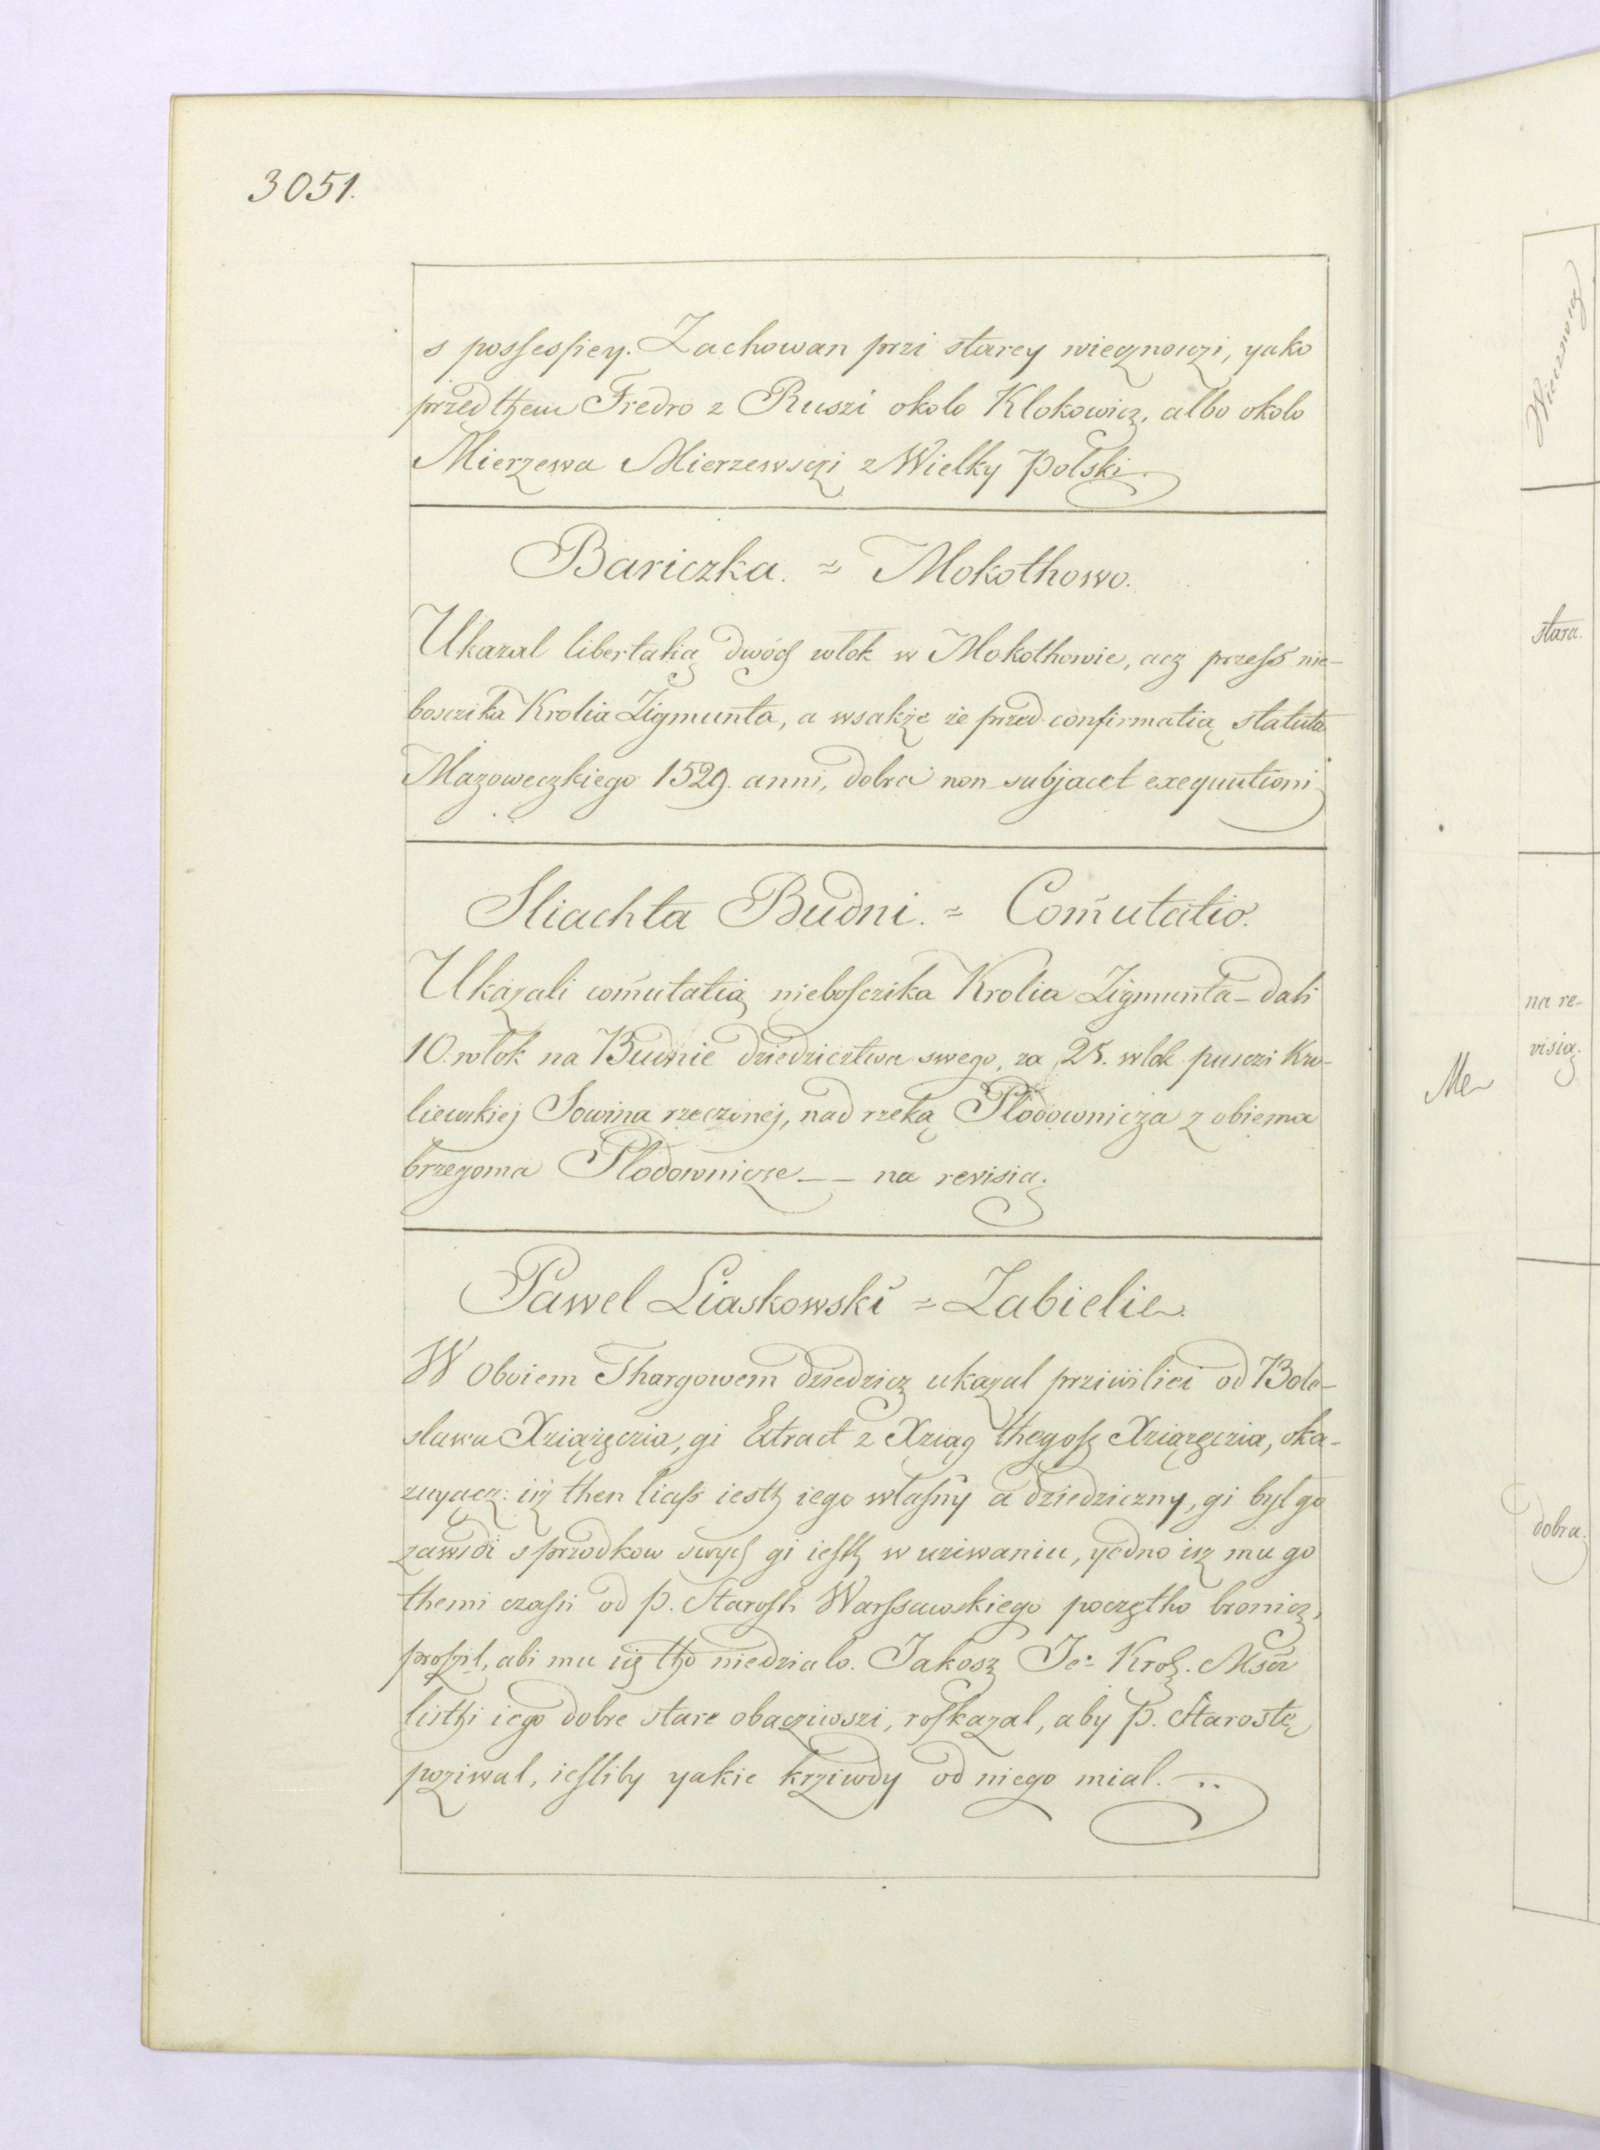 3051.
s possessiey. Zachowan przi starey wiecznosczi, yako
przedthem Fredro z Ruszi okolo Klokowicz, albo okolo
Mierzewa Mierzewsczi z Wielky Polski.
Bariczka. = Mokothowo.
Ukazal libertatią dwóch wlok w Mokothowie, acz przess nie-
bosczika Krolia Zigmunta, a wsakże że przed confirmatią statuta
Mazoweczkiego 1529. anni, dobra non subjacet exequutioni
Sliachta Budni. = Com̄utatio.
Ukazali com̄utatią niebosczika Krolia Zigmunta – dali
10. wlok na Budnie dziedzicztwa swego, za 25. wlok pusczi Kro-
liewskiej Sowina rzeczonej, nad rzeką Plodownicza z obiema
brzegoma Plodownicze — — na revisią.
Pawel Liaskowski = Zabielie.
W Oboiem Thargowem dziedzicz ukazal prziwiliei od Bole-
slawa Xziążęczia, gi Extract z Xziąg thegosz Xziążęczia, oka-
zuyącz: iiż then liass iesth iego wlasny a dziedziczny, gi byl go
zawsdi s przodkow swych gi iesth w uziwaniu, yedno isz mu go
themi czassi od P. Starosti Warssawskiego poczętho bronicz,
proszil, abi mu się tho niedzialo. Jakosz Je: Kroł. Mscz
listhi iego dobre stare obacziwszi, roskazal, aby P. Starostę
pozival, iesliby yakie krziwdy od niego mial.
Wiecznoscz
stara.
na re-
visią.
Me
dobra.